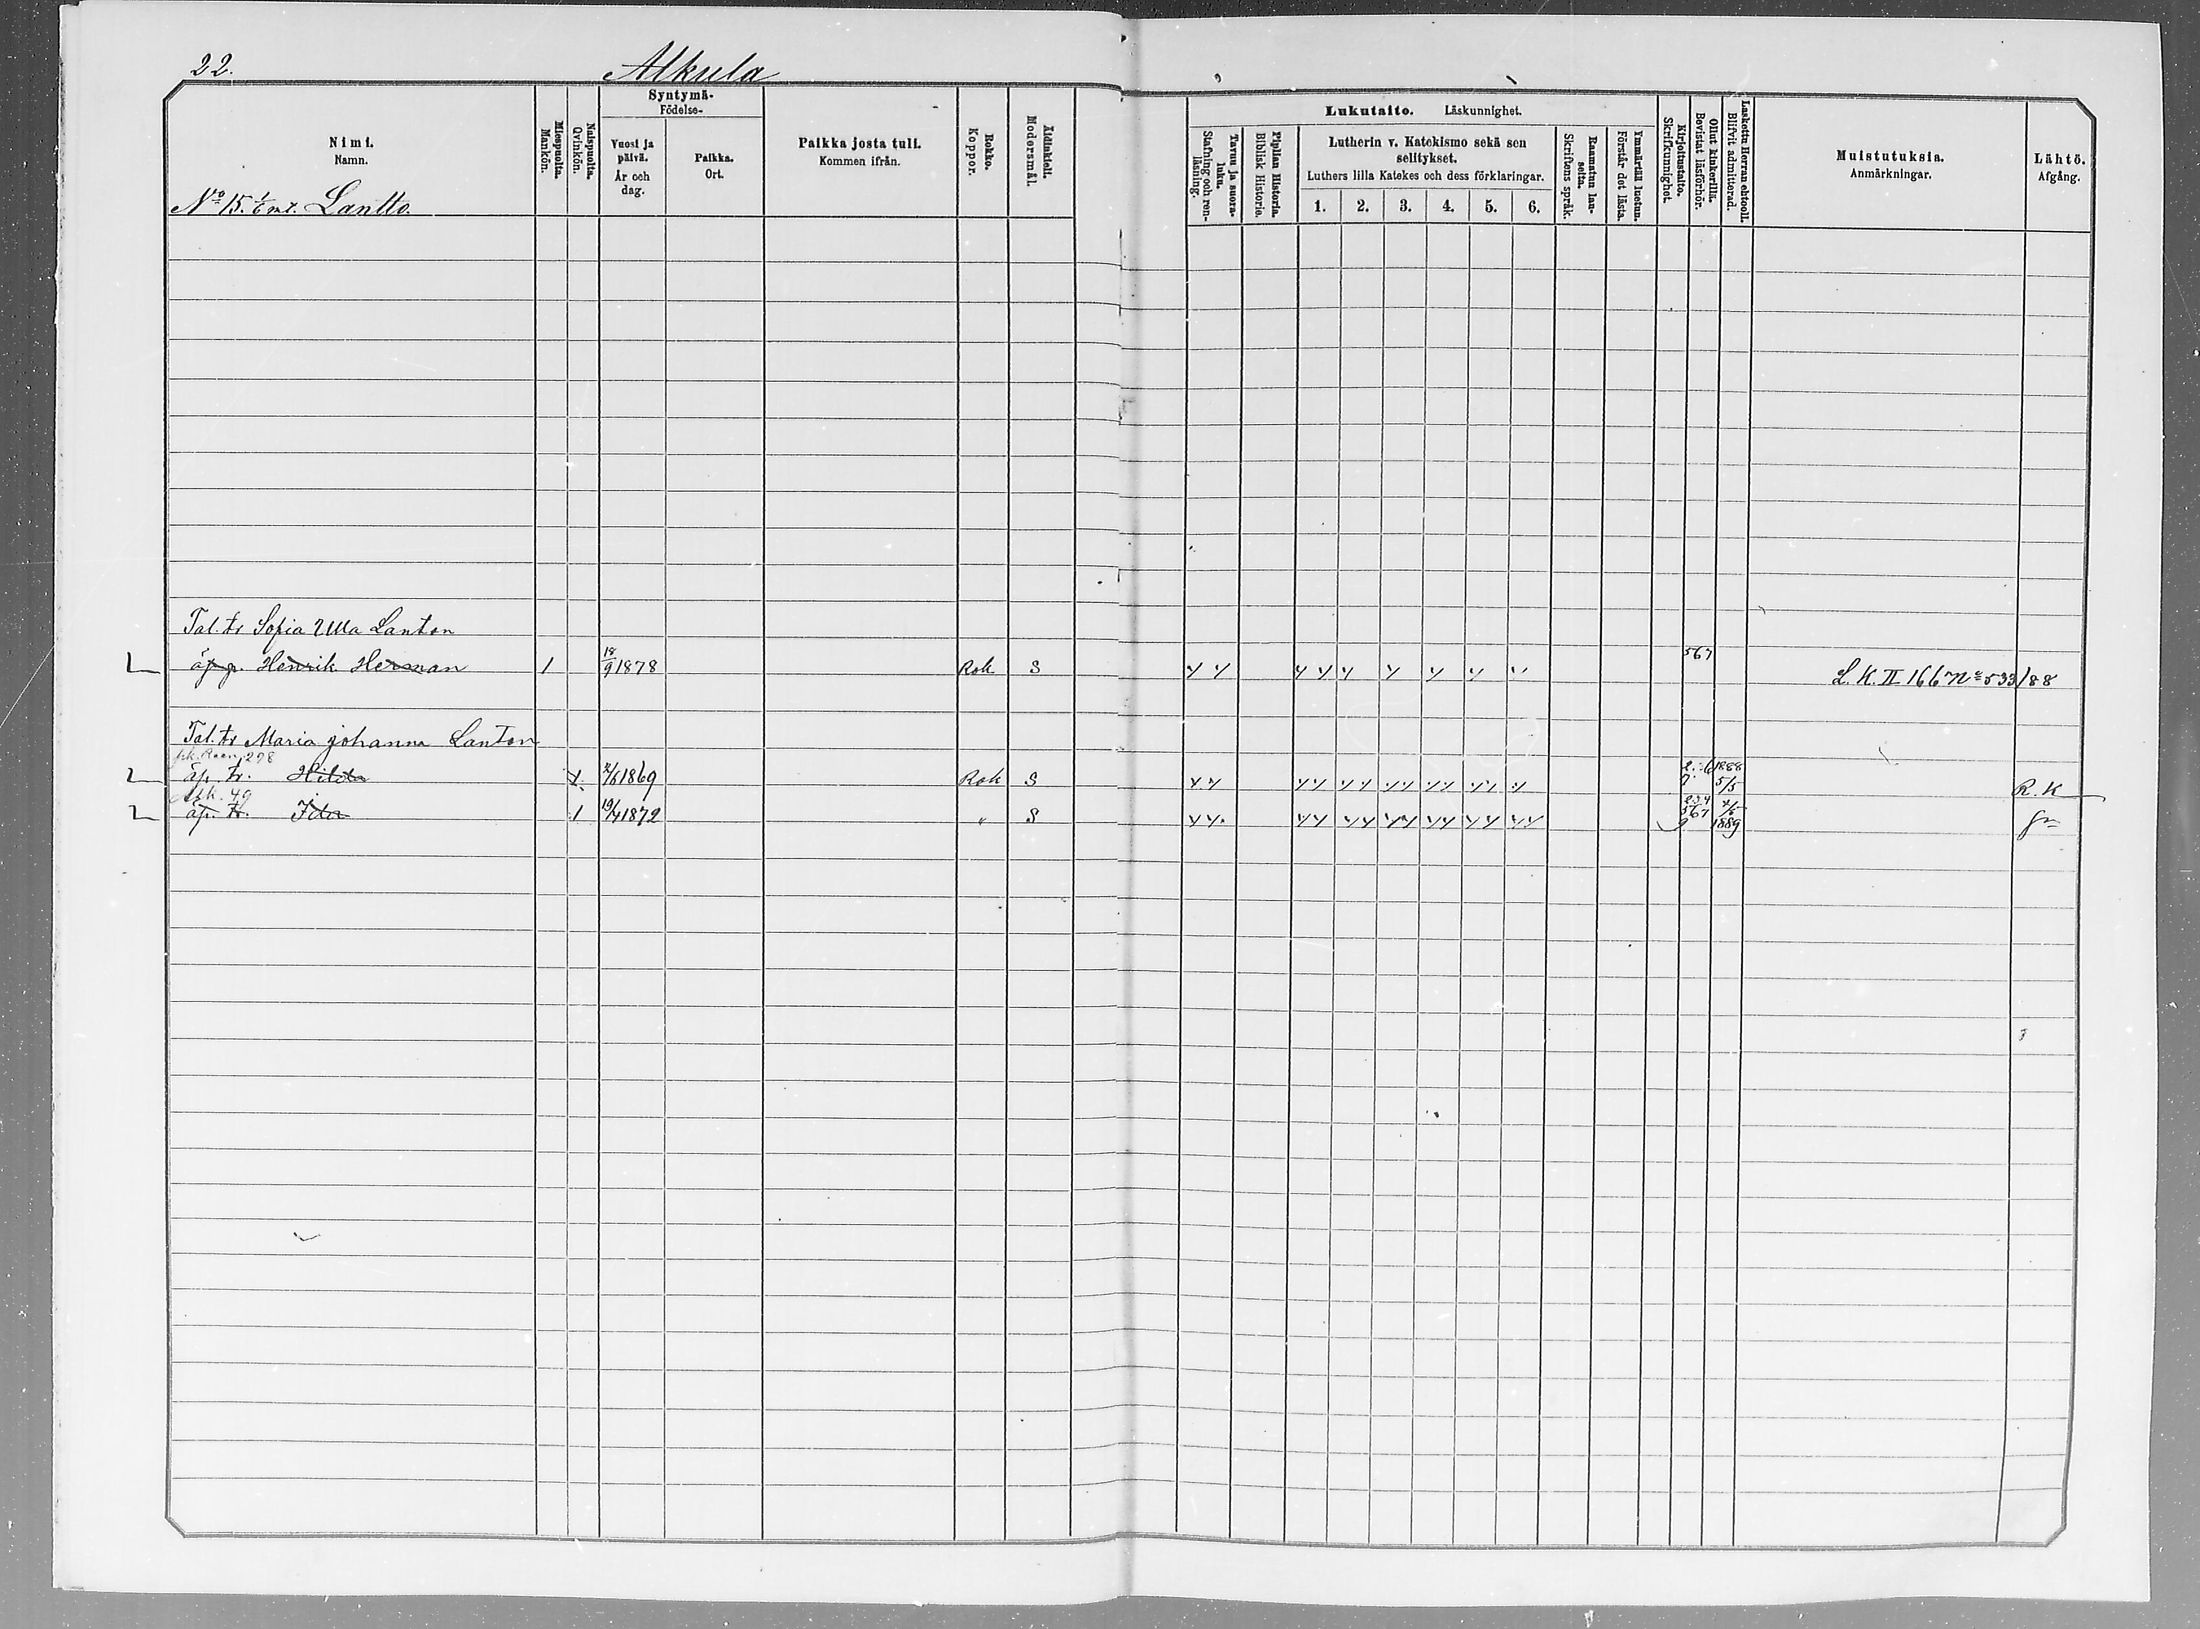 22. Alkula
Syntymä-
Födelse-
Nimi.
Namn.
Miespuolia.
Mankön.
Naispuolia.
Qvinkön.
Vuosi ja päivä.
År och dag.
Paikka.
Ort.
Paikka josta tuli.
Kommen ifrån.
Rokko.
Koppor.
Äidinkieli.
Modersmål.
Lukutaito. Läskunnighet.
Tavuu ja suora-luku.
Stafning och ren-läsning.
Piplian Historia.
Biblisk Historie.
Lutherin v. Katekismo sekä sen selitykset.
Luthers lilla Katekes och dess förklaringar.
1. 2. 3. 4. 5. 6.
Raamatun lau-seita.
Skriftens språk.
Ymmärtää luetun.
Förstår det lästa.
Kirjoitustaito.
Skrifkunnighet.
Ollut kinkerillä.
Bevistat läsförhör.
Laskettu Herran ehtooll.
Blifvit admitterad.
Muistutuksia.
Anmärkningar.
Lähtö.
Afgång.
No 15. Lantto.
Tal. tr Sofia Ulla Lanton
567
äp. p. Henrik Herman 1 18/9 1878 Rok S L. K. II 166 No 533/88
Tal. tr Maria Johanna Lanton
298
äp. tr. Hilda 1 1869 Rok S 1888 5/5 R. K
Alk. 49
äp. tr. Ida 1 19/4 1872 " S 234 567 9 1889